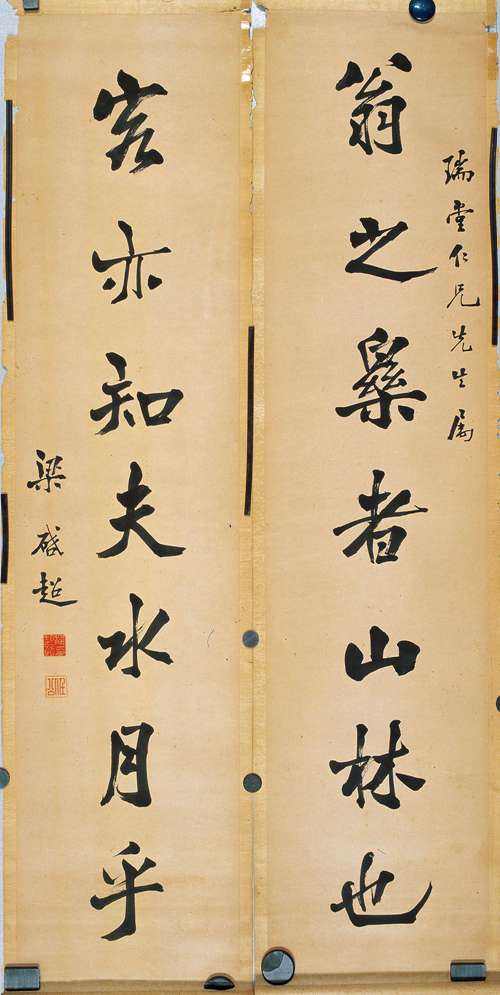 瑞堂仁兄先生属
翁之樂者山林也
客亦知夫水月乎
梁啟超
任公